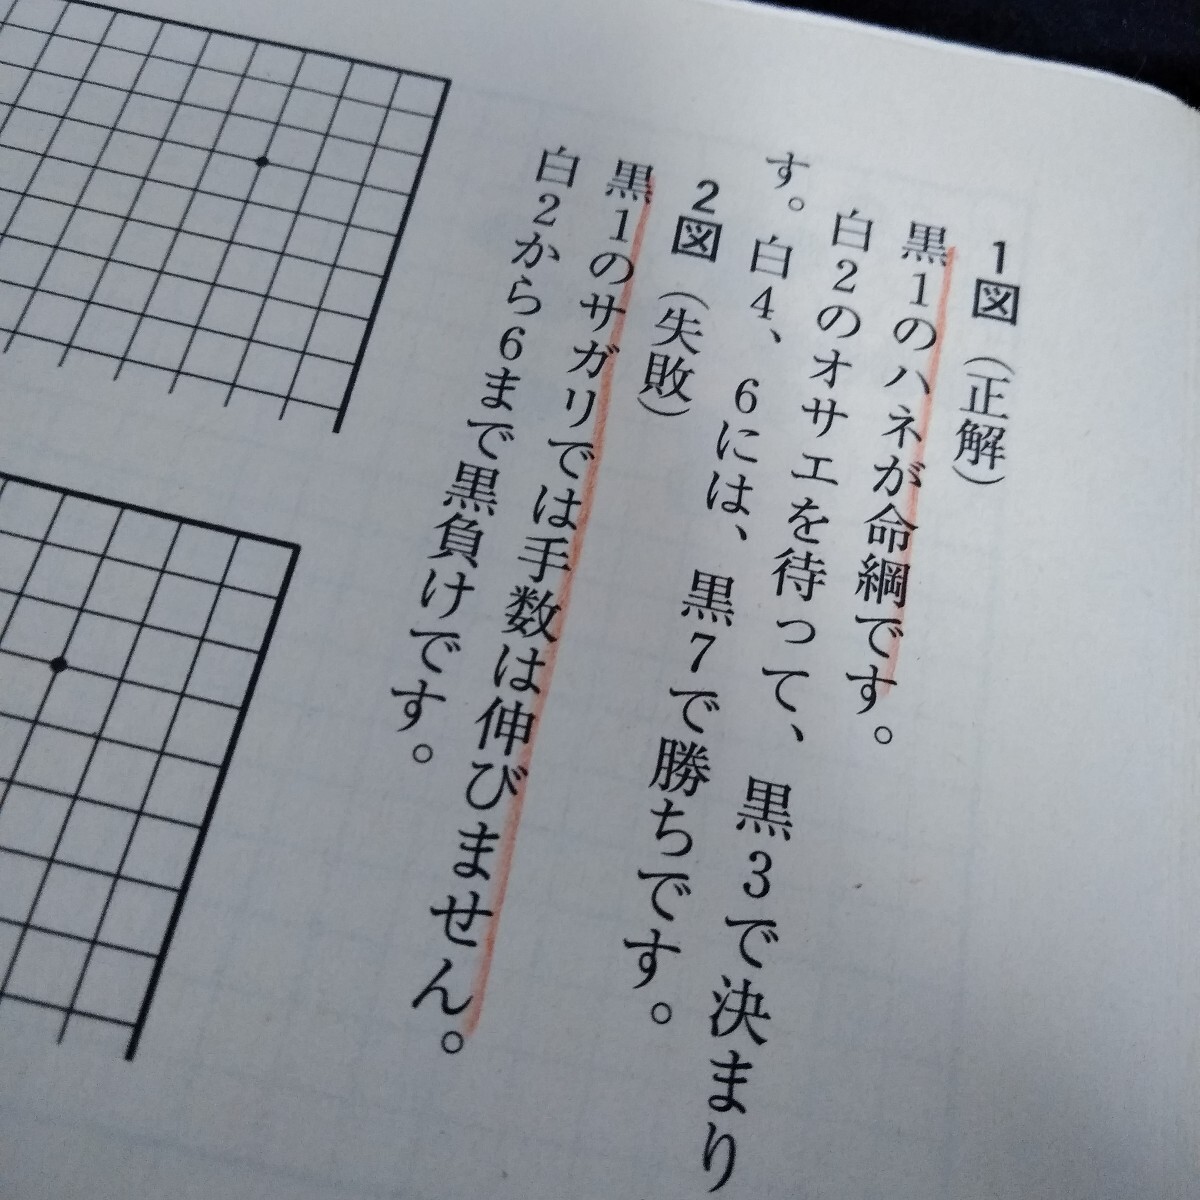 1図（正解）
黒1のハネが命綱です。
白2のオサエを待って、黒3で決まり
す。白4、6には、黒7で勝ちです。
2図（失敗）
黒1のサガリでは手数は伸びません。
白2から6まで黒負けです。